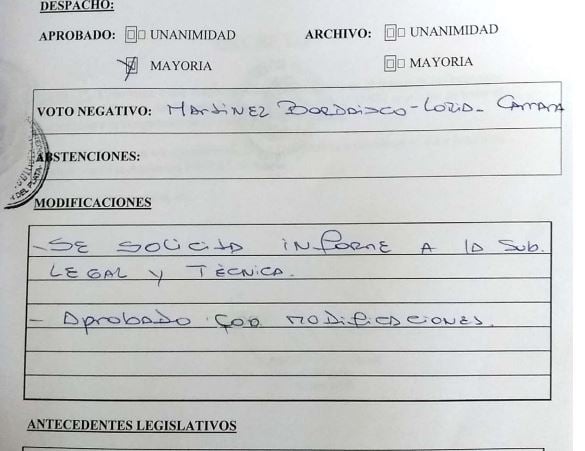 DESPACHO:
APROBADO: UNANIMIDAD ARCHIVO: UNANIMIDAD
MAYORIA MAYORIA
VOTO NEGATIVO: MARTINEZ BORDAISCO - LORIA - CARRARA
ABSTENCIONES:
MODIFICACIONES
- SE SOLICITA INFORME A LA SUB.
LEGAL Y TÈCNICA.
- Aprobado con MODIFICACIONES.
ANTECEDENTES LEGISLATIVOS